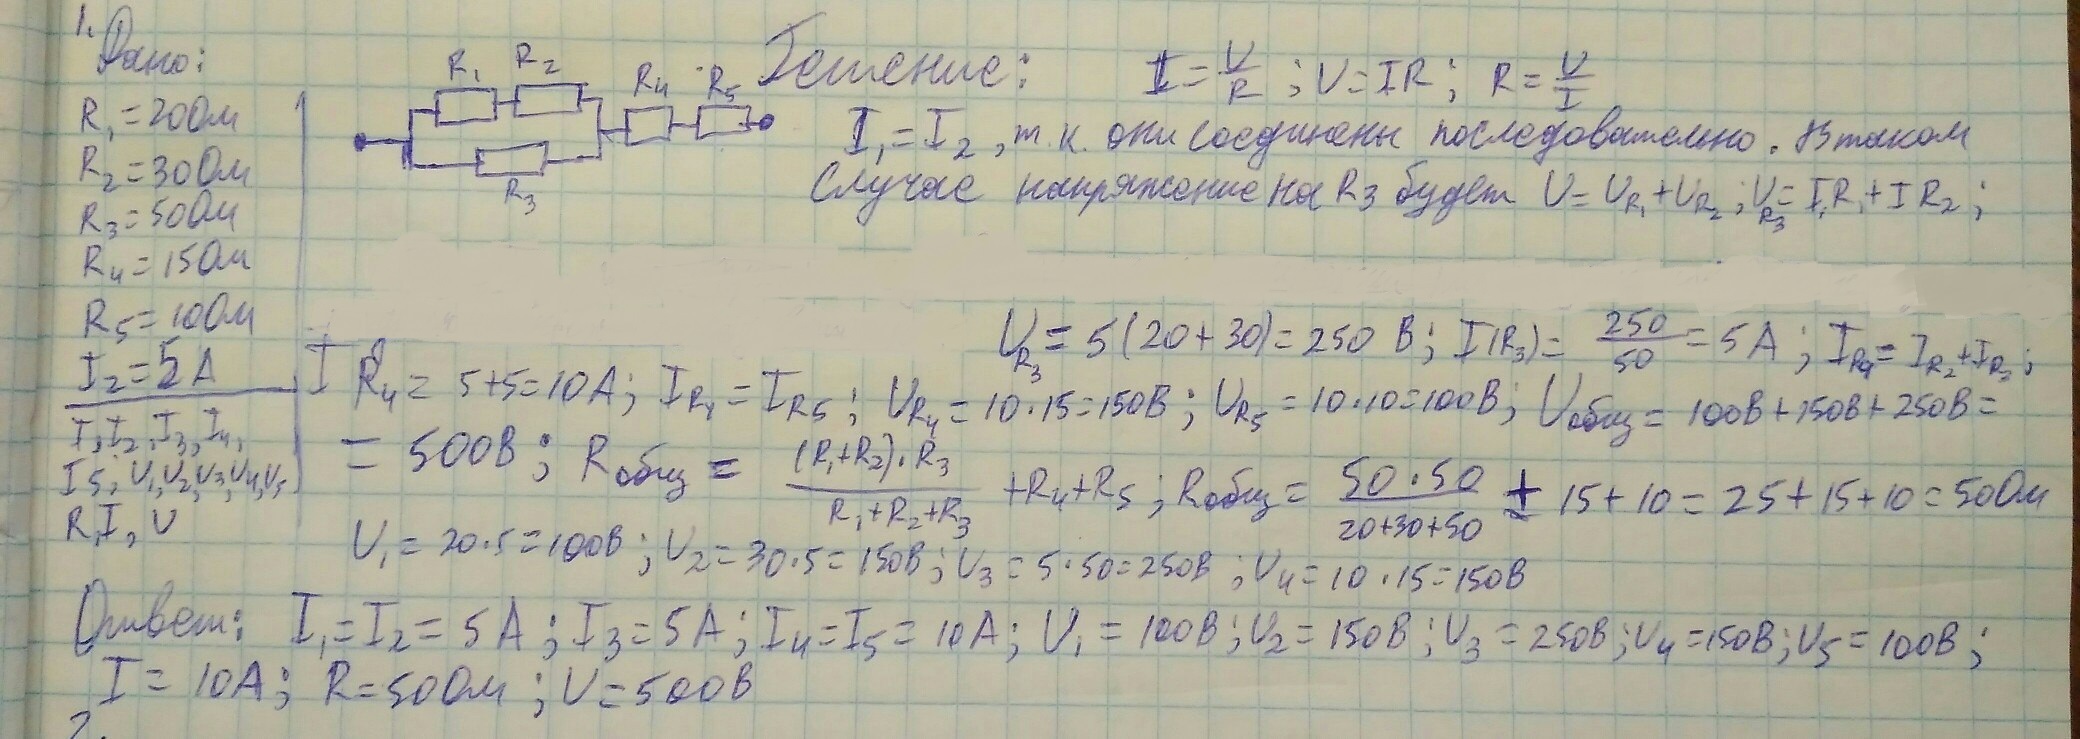 1.
Дано:
R₁=20Ом
R₂=30Ом
R₃=50Ом
R₄=15Ом
R₅=10Ом
I₂=5А
I₁I₂,I₃,I₄,
I₅; U₁,U₂,U₃,U₄,U₅
R,I,U
R₁ R₂ R₄ R₅
R₃
Решение: I=U/R; U=IR; R=U/I
I₁=I₂, т.к. они соединены последовательно. В таком
случае напряжение на R₃ будет U=U_R₁+U_R₂; U_R₃=I₁R₁+IR₂;
U_R₃=5(20+30)=250 В; I(R₃)=250/50=5А; I_R₄=I_R₂+I_R₃;
I R₄=5+5=10А; I_R₄=I_R5; U_R₄=10·15=150В; U_R5=10·10=100В; Uобщ=100В+150В+250В=
=500В; Rобщ=(R₁+R₂)·R₃/R₁+R₂+R₃+R₄+R₅; Rобщ=50·50/20+30+50+15+10=25+15+10=50Ом
U₁=20·5=100В; U₂=30·5=150В; U₃=5·50=250В; U₄=10·15=150В
Ответ: I₁=I₂=5А; I₃=5А; I₄=I₅=10А; U₁=100В; U₂=150В; U₃=250В; U₄=150В; U₅=100В;
I=10А; R=50Ом; U=500В
2.